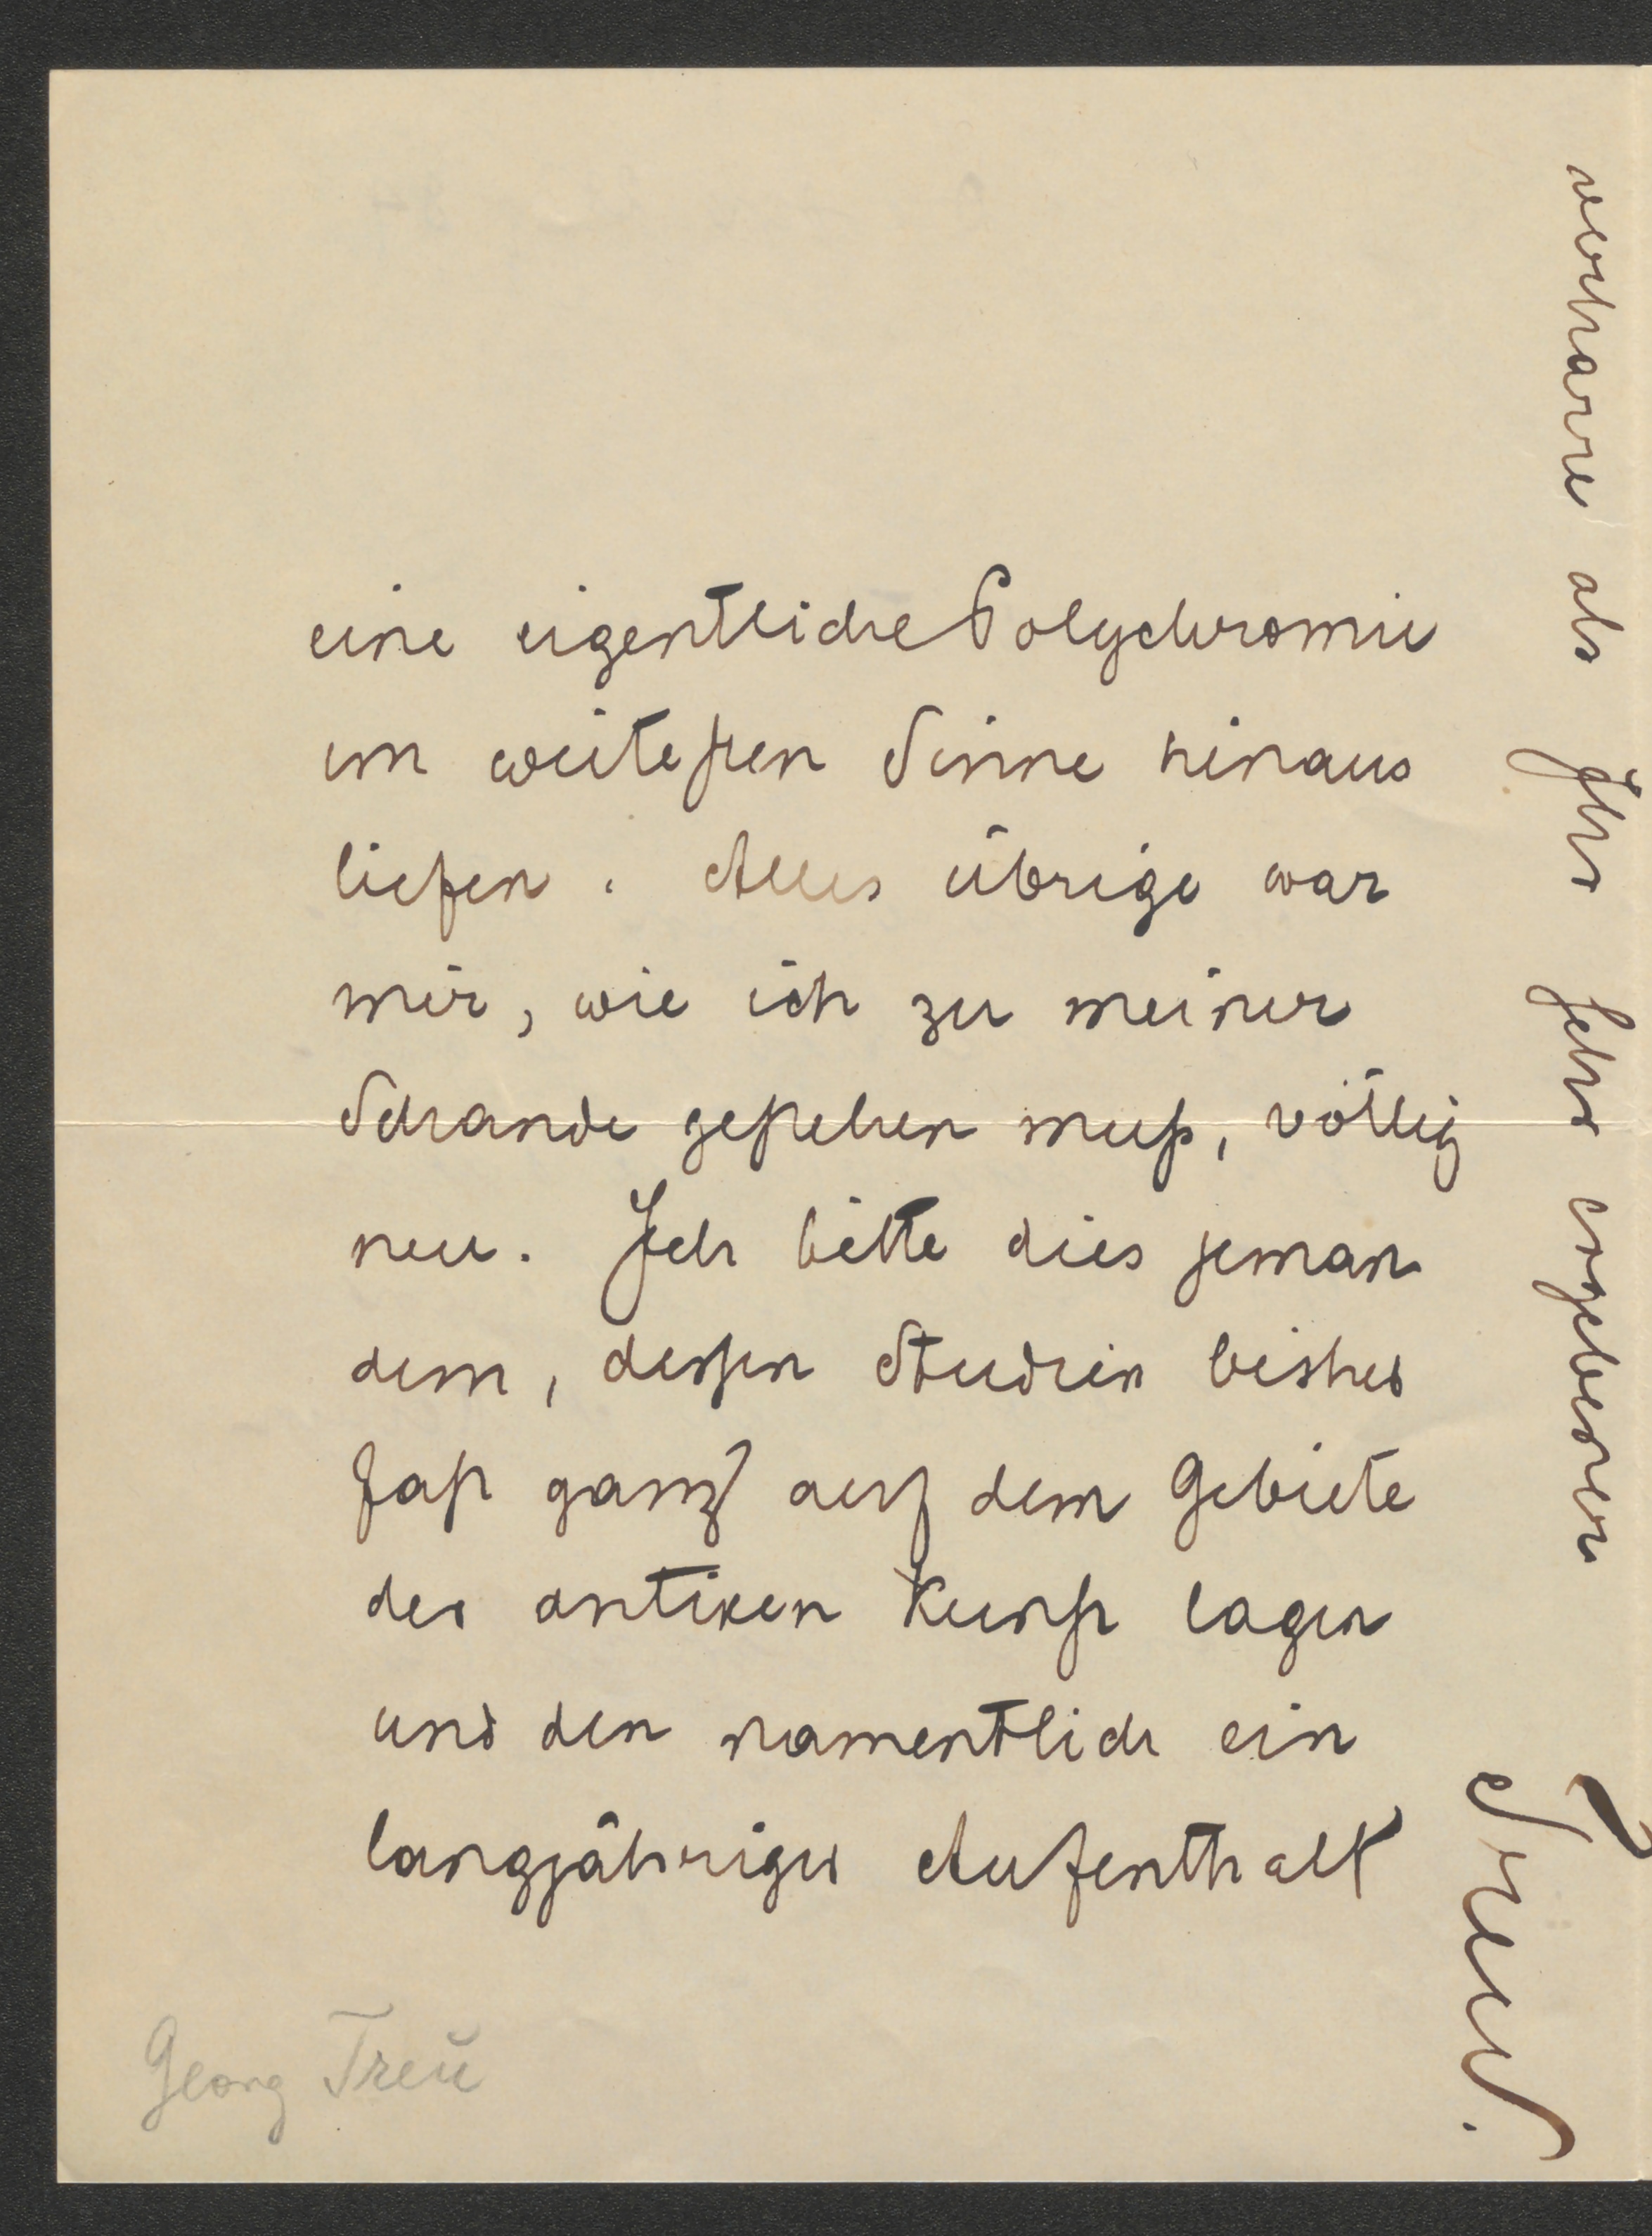 eine eigentliche Polychromie
im weitesten Sinne hinaus
liefen. Alles übrige war
mir, wie ich zu meiner
Schande gestehen muß, völlig
neu. Ich bitte dies jeman
dem, dessen Studien bisher
fast ganz auf dem Gebiete
der antiken Kunst lagen
und den namentlich ein
langjähriger Aufenthalt
verharre als Ihr sehr ergebener
Treu.
Georg Treu